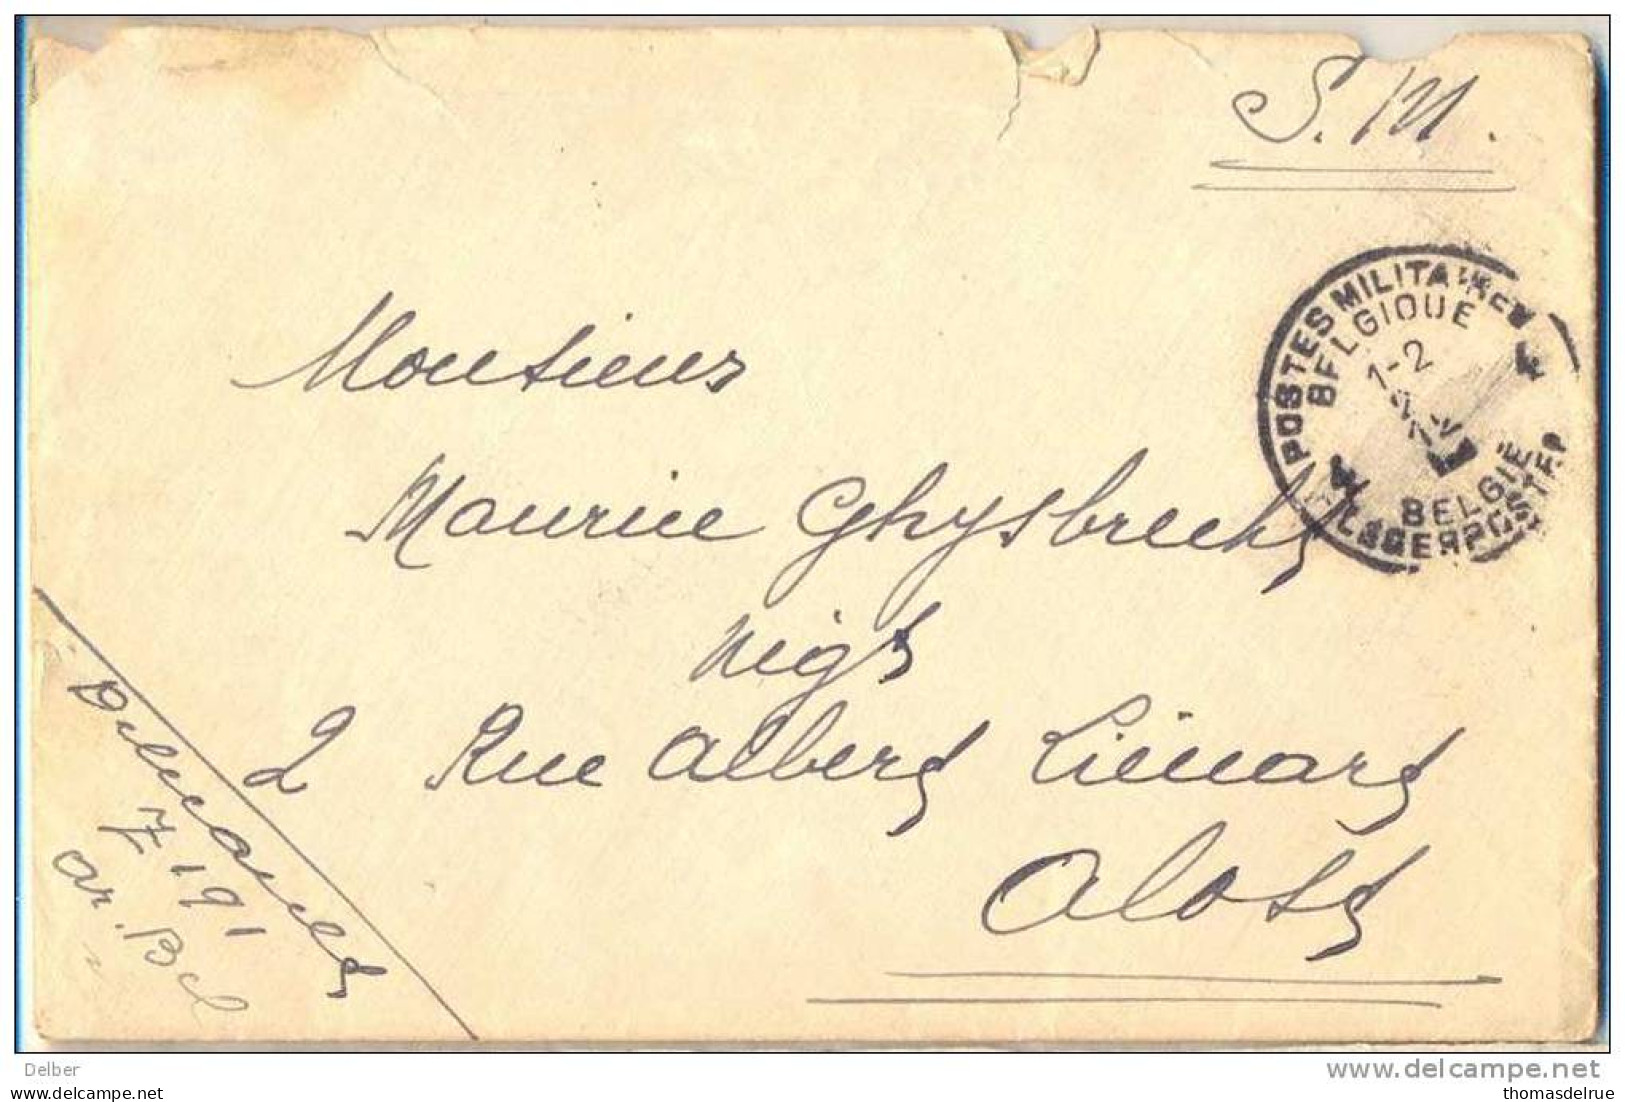 S.M.
POSTES MILITAIRES
BELGIQUE
1-2
BELGIË
LEGERPOSTERIJ
Monsieur
Maurice Ghysbrecht
Negt
2 Rue Albert Liénart
Alost
Z 191
ar. Bel
Delber
delcampe.net
thomasdelrue